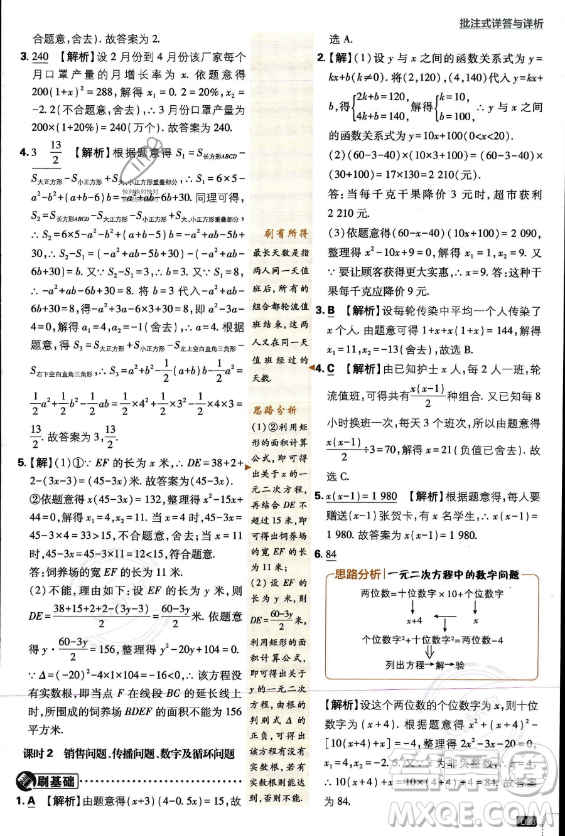 批注式详答与详析
合意题,舍去).故答案为2.
3. 240 【解析】设2月份到4月份该厂家每个
月口罩产量的月增长率为x.依题意得
200(1+x)²=288,解得x₁=0.2=20%,x₂=
-2.2(不合题意,舍去),∴3月份的产量为
200×(1+20%)=240(万个).故答案为240.
4. 3 13/2 【解析】根据题意得S₁=S长方形ABCD-
S大正方形-S小正方形+S大、小正方形重叠部分,∴S₁=6×5-
a²-b²+(a+b-6)b=-a²+ab-6b+30.同理可得,
S₂=S长方形ABCD-S大正方形-S小正方形+S大、小正方形重叠部分,
∴S₂=6×5-a²-b²+(a+b-5)b=-a²+ab-5b+
30,∴S₂-S₁=(-a²+ab-5b+30)-(-a²+ab-
6b+30)=b=3.将b=3代入-a²+ab-
6b+30=8,得-a²+3a-6×3+30=8,即a²-3a-
4=0,解得a₁=4,a₂=-1(舍去),∴a=4.根据题
意得S₃=S大正方形+S小正方形-S左上空白直角三角形-
S右下空白直角三角形=a²+b²-1/2(a+b)b-1/2a²=
1/2a²+1/2b²-1/2ab=1/2×4²+1/2×3²-1/2×4×3=
13/2.故答案为3,13/2.
5.【解】(1)①∵EF的长为x米,∴DE=38+2+
2-(3x-3)=(45-3x)米.
②依题意得x(45-3x)=156,整理得x²-15x+
44=0,解得x₁=4,x₂=11.当x=4时,45-3x=
45-3×4=33>15,不合题意,舍去;当x=11时,
45-3x=45-3×11=12,符合题意.
答:饲养场的宽EF的长为11米.
(2)不能.理由如下:设EF的长为y米,则
DE=(38+15+2+2-(3y-3))/2=(60-3y)/2(米).依题意
得y·(60-3y)/2=156,整理得y²-20y+104=0.
∵Δ=(-20)²-4×1×104=-16<0,∴该方程没
有实数根,即当点F在线段BC的延长线上
时,所围成的饲养场BDEF的面积不能为156
平方米.
课时2 销售问题、传播问题、数字及循环问题
刷基础
1. A 【解析】由题意得(x+3)(4-0.5x)=15.故
刷有所得
最长天数是指
两人同一天值
班后,所有的
组合都轮流值
班结束,这两
人又在同一天
值班经过的
天数.
思路分析
(1)②利用矩
形的面积计算
公式,即可得
出关于x的一
元二次方程,
再结合DE不
超过15米,即
可得出饲养场
的宽EF的长;
(2)设EF的
长为y米,则
DE=(60-3y)/2米,
利用矩形的面
积计算公式,
即可得出关于
y的一元二次
方程,由根的
判别式Δ=
-16<0,可得出
该方程没有实
数根,进而可
得出饲养场
BDEF的面积
不能为156平
方米.
选A.
2.【解】(1)设y与x之间的函数关系式为y=
kx+b(k≠0).将(2,120),(4,140)代入y=kx+
b,得{2k+b=120,4k+b=140,解得{k=10,b=100,∴y与x之间
的函数关系式为y=10x+100(0<x<20).
(2)(60-3-40)×(10×3+100)=(60-3-40)×
(30+100)=17×130=2 210(元).
答:当每千克干果降价3元时,超市获利
2 210元.
(3)依题意得(60-x-40)(10x+100)=2 090,
整理得x²-10x+9=0,解得x₁=1,x₂=9.又
∵要让顾客获得更大实惠,∴x=9.答:这种干
果每千克应降价9元.
3. B 【解析】设每轮传染中平均一个人传染了
x个人.由题意得1+x+x(1+x)=144,解得
x₁=11,x₂=-13(舍去),故选B.
4. C 【解析】由已知护士x人,每2人一班,轮
流值班,可得共有x(x-1)/2种组合.又已知每8
小时换班一次,每天3个班次,所以由题意得
x(x-1)/2÷3=70,解得x=21(负值已舍去).故
选C.
5. x(x-1)=1 980 【解析】根据题意得,每人要
赠送(x-1)张贺卡,有x名学生,∴共送
x(x-1)=1 980.故答案为x(x-1)=1 980.
6. 84
思路分析 一元二次方程中的数字问题
两位数=十位数字×10+个位数字
个位数字²+十位数字²=两位数-4
列出方程→解→验
【解析】设这个两位数的个位数字为x,则十位
数字为(x+4).根据题意得x²+(x+4)²=
[10(x+4)+x]-4,整理得2x²-3x-20=0,解得
x₁=4,x₂=-2.5.∵x不为非整数,∴x=4,
∴10(x+4)+x=10×(4+4)+4=84.故答案
为84.
作业帮
MXQE.COM